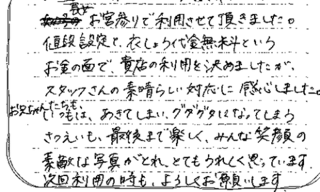 お宮参りで利用させて頂きました。
値段設定と、衣しょうレイ金無料という
お金の面で、貴店の利用を決めましたが、
スタッフさんの素晴らしい対応に感心しました。
お兄ちゃんたちも、
いつもは、あきてしまい、グダグダになってしまう
さつえいも、最後まで楽しく、みんな笑顔の
素敵な写真がとれ、とてもうれしく思っています
次回利用の時も、よろしくお願いします